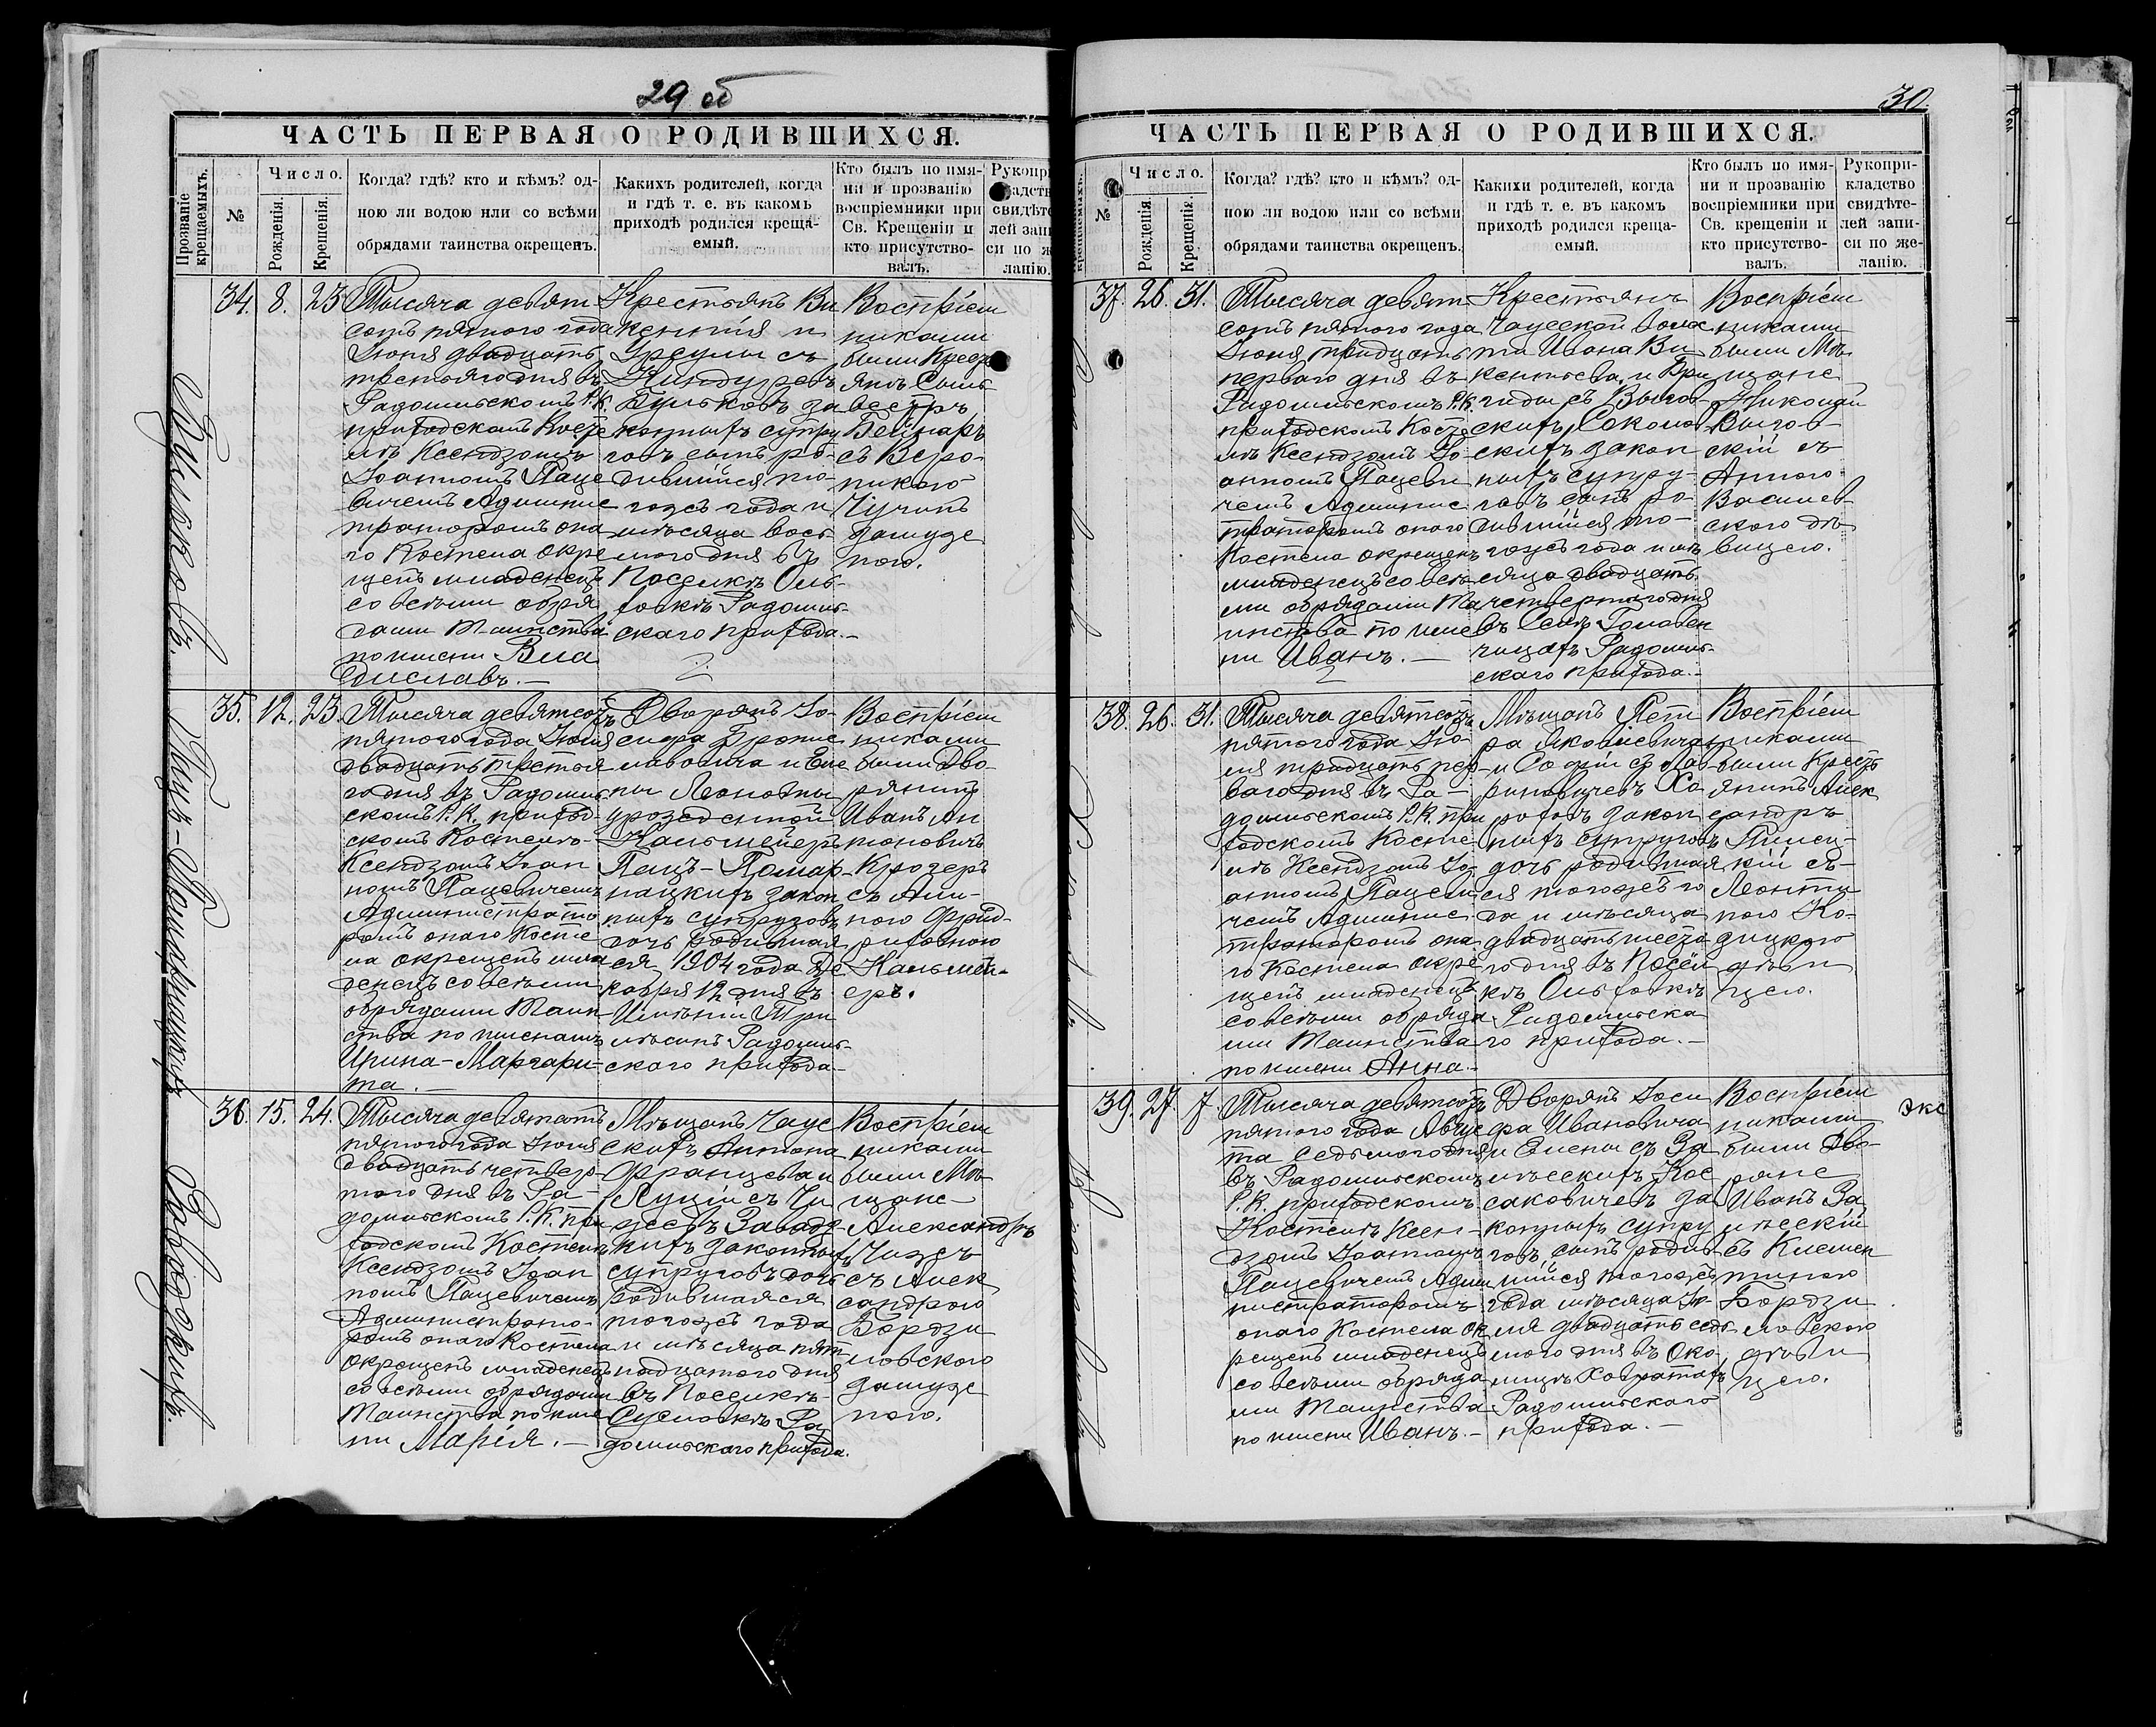 29 об
ЧАСТЬ ПЕРВАЯ О РОДИВШИХСЯ.
Прозваніе крещаемыхъ.
№
Число.
Рожденія.
Крещенія.
Когда? гдѣ? кто и кѣмъ? од-
ною ли водою или со всѣми
обрядами таинства окрещенъ.
Какихъ родителей, когда
и гдѣ т. е. въ какомъ
приходѣ родился креща-
емый.
Кто былъ по имя-
ни и прозванію
воспріемники при
Св. Крещеніи и
кто присутство-
валъ.
Рукопри
кладств
свидѣте
лей запи
си по же
ланію.
Бульковъ.
34. 8. 23
Тысяча девят
сотъ пятого года
Іюля двадцать
третьяго дня въ
Радомльскомъ Р.К.
приходскомъ Косте
лѣ Ксендзомъ
Іоанномъ Паце
вичемъ Админис
траторомъ она
го Костела окре
щенъ младенецъ
со всѣми обря
дами Таинства
по имени Вла
диславъ.—
Крестьянъ Ви
кентія и
Урсулы съ
Киндуревъ
Бульковъ за
конныхъ супру
говъ сынъ ро-
дившійся то-
гожъ года и
мѣсяца вось
мого дня въ
Поселкѣ Оль-
ховкѣ Радомль-
скаго прихода.—
Воспріем
никами
были Крест
янъ Силь
вестръ
Бейнаръ
съ Веро-
никою
Чучинъ
замуде
ною.
Пацъ-Помарнацкихъ
35. 12. 23.
Тысяча девятсотъ
пятого года Іюля
двадцать третья
го дня въ Радомль-
скомъ Р.К. приход-
скомъ Костелѣ-
Ксендзомъ Іоан
номъ Пацевичемъ
Администрато
ромъ онаго Косте
ла окрещенъ мла
денецъ со всѣми
обрядами Таин-
ства по именамъ
Ирина-Маргари-
та.—
Дворянъ Іо-
сифа Бронис
лавовича и Еле
ны Леоновны
урожденной
Кальмейеръ
Пацъ-Помар-
нацкихъ закон
ныхъ супруговъ
дочь родившая
ся 1904 года Де
кабря 12 дня въ
Имѣніи Три
лѣсинъ Радомль-
скаго прихода—
Воспріем
никами
были Дво-
рянинъ
Иванъ Ан
тоновичъ
Крогеръ
съ Ан-
ною Фрид-
риховною
Кальмей-
еръ.
Завадскихъ.
36. 15. 24.
Тысяча девятсотъ
пятого года Іюля
двадцать четвер-
того дня въ Ра-
домльскомъ Р.К. при
ходскомъ Костелѣ
Ксендзомъ Іоан
номъ Пацевичемъ
Администрато-
ромъ онаго Костела
окрещенъ младенецъ
со всѣми обрядами
Таинства по име
ни Марія.—
Мѣщанъ Чаус
скихъ Антона
Францева и
Луціи съ Чи
жевъ Завад-
кихъ законныхъ
супруговъ дочь
родившаяся
тогожъ года
и мѣсяца пят
надцатого дня
въ Поселкѣ
Сусловкѣ Ра
домльскаго прихода.
Воспріем
никами
были Мѣ-
щане-
Александръ
Чижъ
съ Алек
сандрою
Бордзи
ловскою
замуде
ною.
30.
ЧАСТЬ ПЕРВАЯ О РОДИВШИХСЯ.
№
Число.
Рожденія.
Крещенія.
Когда? гдѣ? кто и кѣмъ? од-
ною ли водою или со всѣми
обрядами таинства окрещенъ.
Какихи родителей, когда
и гдѣ т. е. въ какомъ
приходѣ родился креща-
емый.
Кто былъ по имя-
ни и прозванію
воспріемники при
Св. крещеніи и
кто присутство-
валъ.
Рукопри-
кладство
свидѣте-
лей запи-
си по же-
ланію.
37. 26. 31.
Тысяча девят
сотъ пятого года
Іюля тридцать
перваго дня въ
Радомльскомъ Р.К.
приходскомъ Косте
лѣ Ксендзомъ Іо-
анномъ Пацеви
чемъ Админис
траторомъ онаго
Костела окрещенъ
младенецъ со всѣ
ми обрядами Та
инства по име
ни Иванъ.—
Крестьянъ
Чаусской волос
ти Ивана Ви
кентьева и Бри
гиды съ Выгов-
скихъ Соколов
скихъ закон
ныхъ супру-
говъ сынъ ро-
дившійся то-
гожъ года и мѣ
сяца двадцать
четвертаго дня
въ Селѣ Головен
чицахъ Радомль-
скаго прихода.—
Воспріем
никами
были Мѣ
щане
Николай
Выгов-
скій съ
Анною
Василев-
скою дѣ
вицею.
38. 26. 31.
Тысяча девятсотъ
пятого года Ію-
ля тридцать пер-
ваго дня въ Ра-
домльскомъ Р.К. при
ходскомъ Косте
лѣ Ксендзомъ Іо-
анномъ Пацеви
чемъ Админис
траторомъ она
го Костела окре
щенъ младенецъ
со всѣми обряда
ми Таинства
по имени Анна.
Мѣщанъ Пет
ра Яковлевича
и Софіи съ Лав-
риновичевъ Хо
ротовъ закон
ныхъ супруговъ
дочь родившая
ся тогожъ го
да и мѣсяца
двадцать шеста
го дня въ Посел
кѣ Ольховкѣ
Радомльска
го прихода.—
Воспріем
никами
были Крест
янинъ Алек
сандръ
съ
Леонти
ною Ко-
зицкою
дѣви
цею.
39. 27. 7
Тысяча девятсотъ
пятого года Авгус
та седьмого дня
въ Радомльскомъ
Р.К. приходскомъ
Костелѣ Ксен-
дзомъ Іоанномъ
Пацевичемъ Адми
нистраторомъ
онаго Костела ок
рещенъ младенецъ
со всѣми обряда
ми Таинства
по имени Иванъ.—
Дворянъ Іоси
фа Ивановича
и Елены съ За
лѣсскихъ Кос
саковичевъ за
конныхъ супру
говъ сынъ родив-
шійся тогожъ
года мѣсяца Ію-
ля двадцать седь
мого дня въ Око
лицѣ Ховратахъ
Радомльскаго
прихода.—
Воспріем
никами
были Дво-
ряне
Иванъ За
лѣсскій
съ Клемен
тиною
Бордзи
ловскою
дѣви
цею.
экс